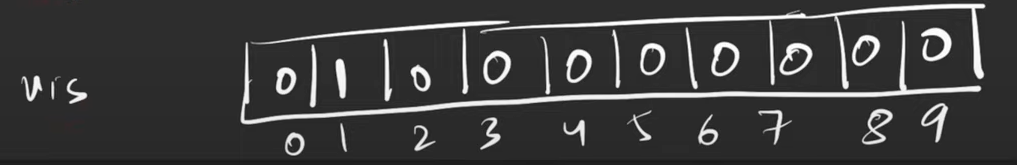 vis 0 1 0 0 0 0 0 0 0 0
0 1 2 3 4 5 6 7 8 9